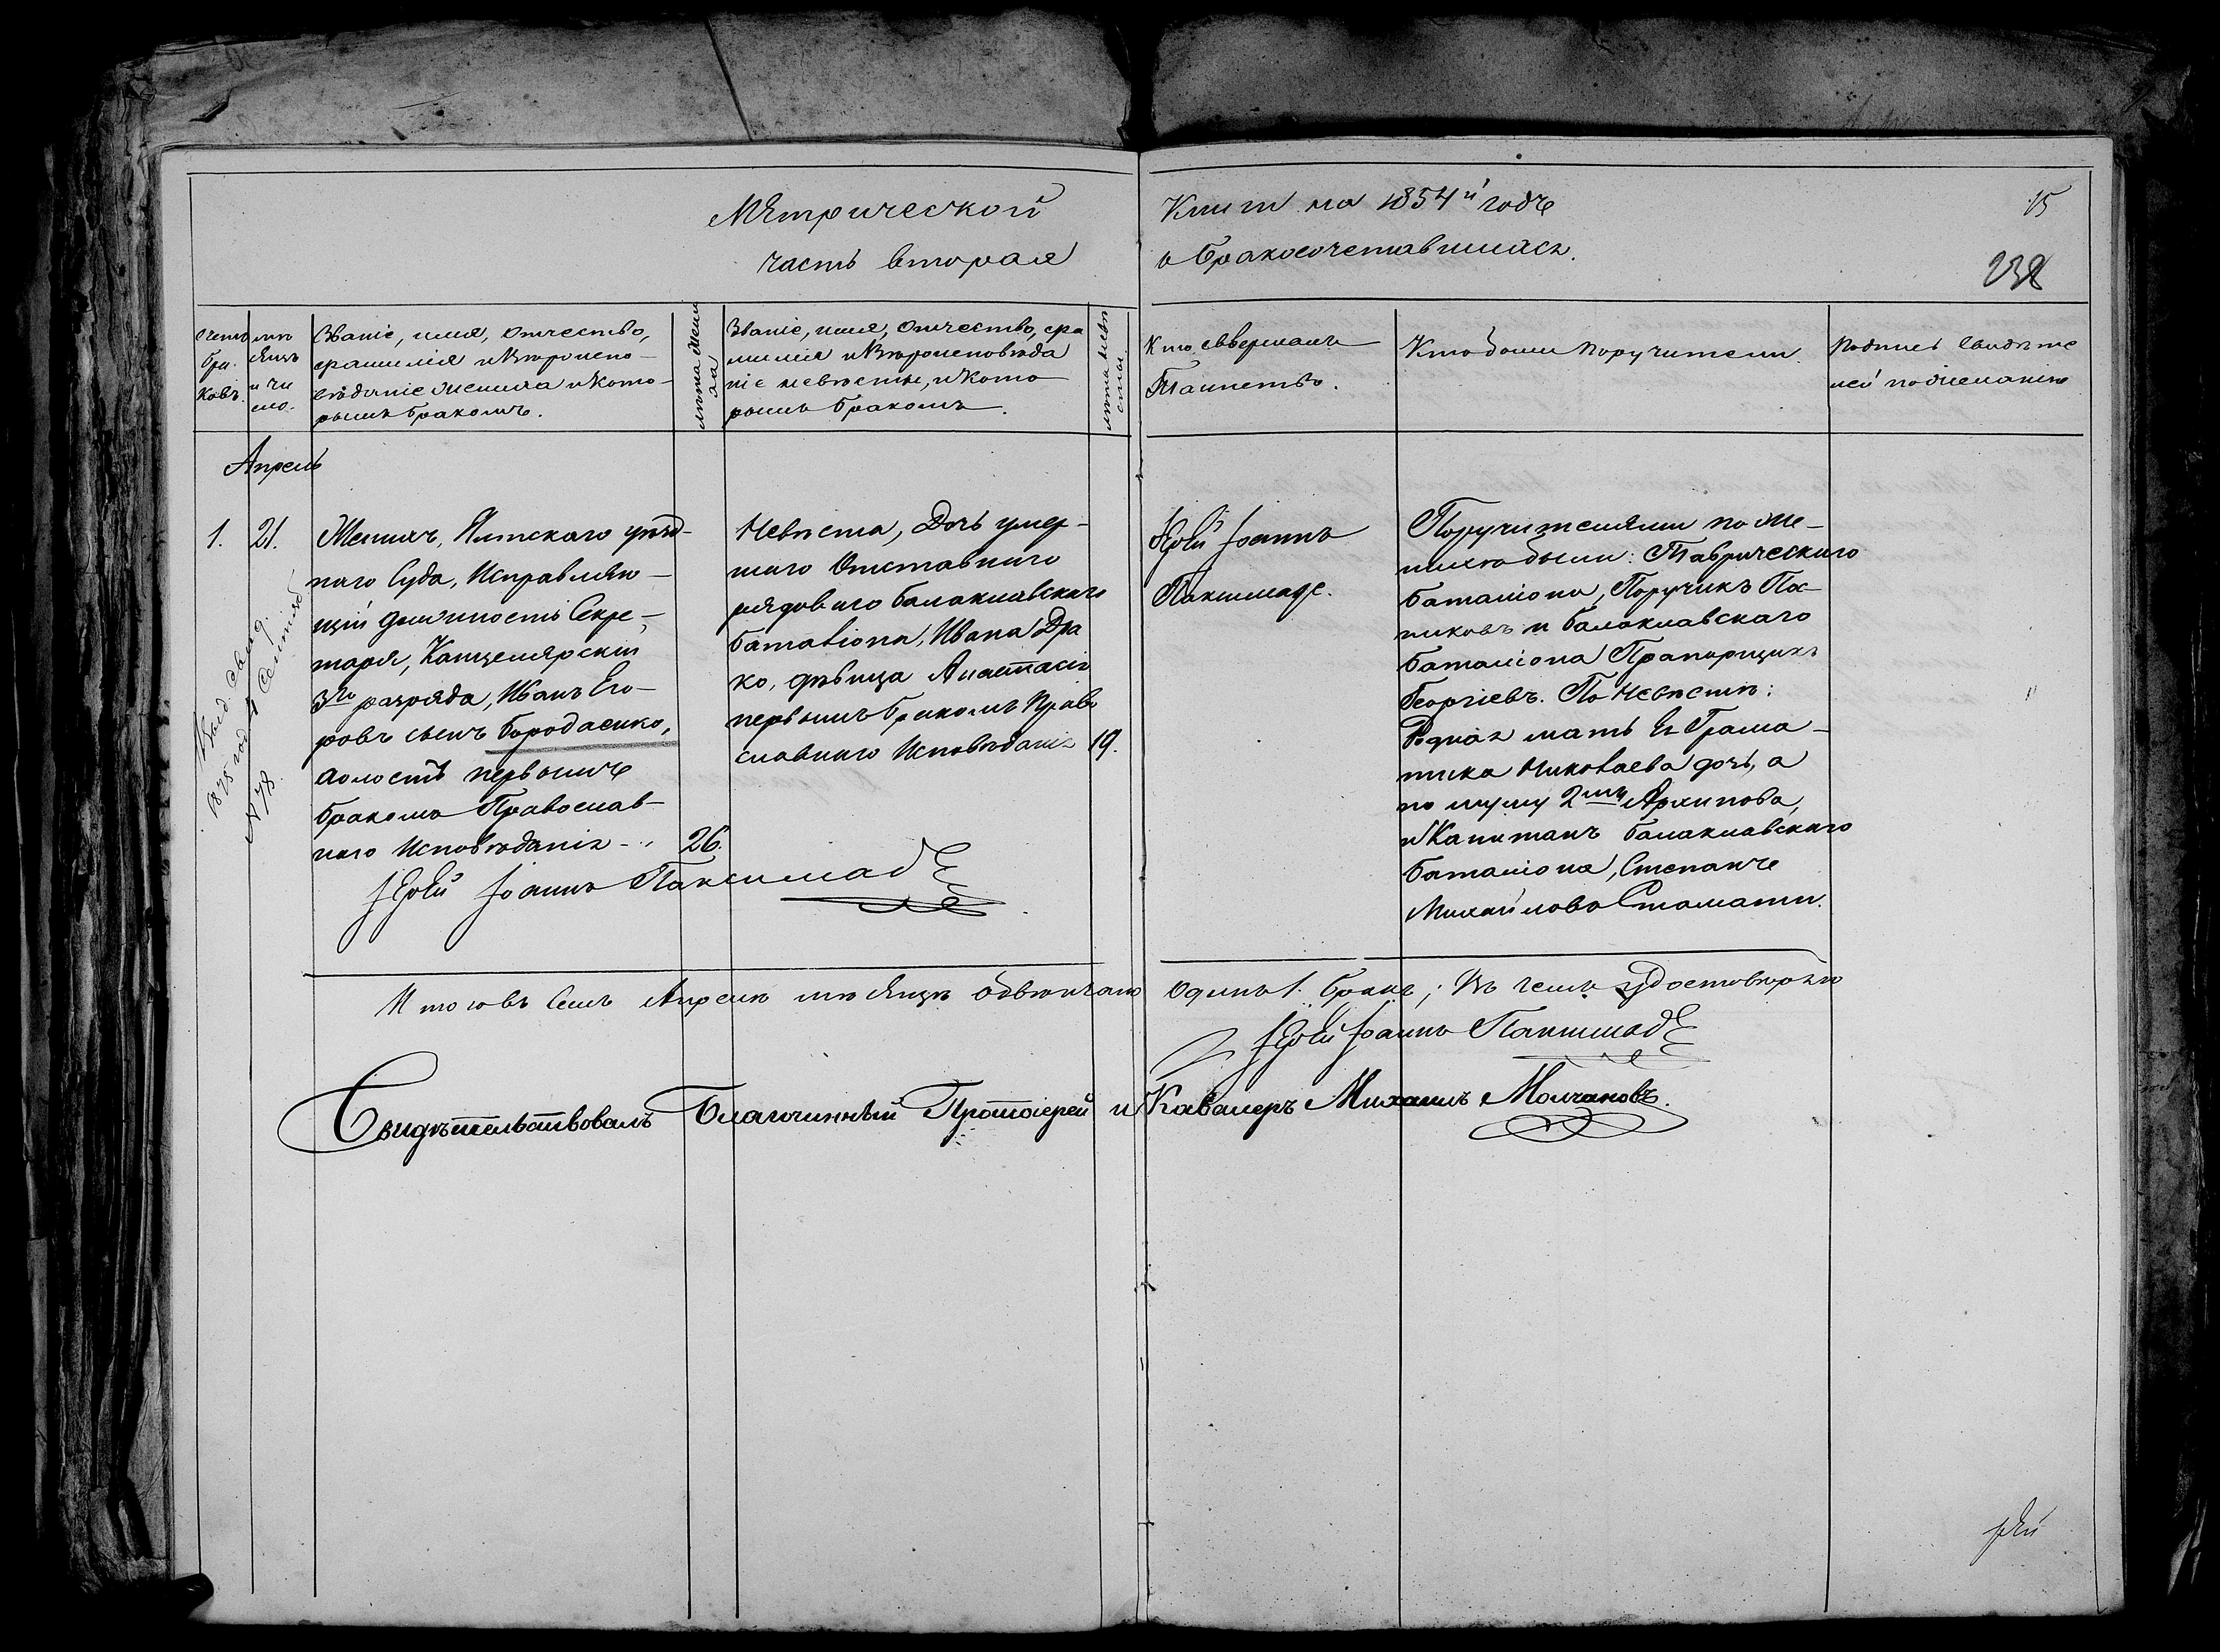 Метрической
часть вторая
Книги на 1854й годъ
о бракосочетавшихся.
15
232
Счетъ
бра-
ковъ.
мѣ-
сяцъ
и чи
сло.
Званіе, имя, отчество,
фамилія и вѣроиспо-
вѣданіе жениха и кото-
рымъ бракомъ.
лѣта жени
ха
Званіе, имя, отчество, фа
милія и вѣроисповѣда
ніе невѣсты, и кото
рымъ бракомъ.
лѣта невѣ
сты.
Кто совершалъ
Таинство.
Кто были поручители.
Подпись свидѣте
лей по желанію
Апрель
1.
21.
Женихъ, Ялтскаго уѣзд-
наго Суда, Исправляю-
щій должность Секре-
таря, Канцелярскій
3го разряда, Иванъ Его-
ровъ сынъ Бородаенко,
холостъ первымъ
бракомъ Православ-
наго Исповѣданія
26.
Невѣста, Дочь умер-
шаго Отставнаго
рядоваго балаклавскаго
баталіона, Ивана Дра
ко, дѣвица Анастасія
первымъ бракомъ Право
славнаго Исповѣданія
19.
Іерей Іоаннъ
Паксимаде.
Поручителями по же-
нихѣ были: Таврическаго
баталіона, Поручикъ
и балаклавскаго
баталіона Прапорщикъ
Георгіевъ. По невѣстѣ:
Родная мать Ея
Николаева дочь, а
по мужу 2мъ Архипова,
и Капитанъ балаклавскаго
баталіона, Степанъ
Михайловъ Стамати.
Выд. свид.
1875 год. 4 Сентяб.
№ 78.
Іерей Іоаннъ Паксимаде
Итого въ семъ Апрелѣ мѣсяцѣ обвѣнчано один 1. бракъ; въ чемъ удостовѣряю
Іерей Іоаннъ Паксимаде
Свидѣтельствовалъ Благочинный Протоіерей и Кавалеръ Михаилъ Молчановъ.